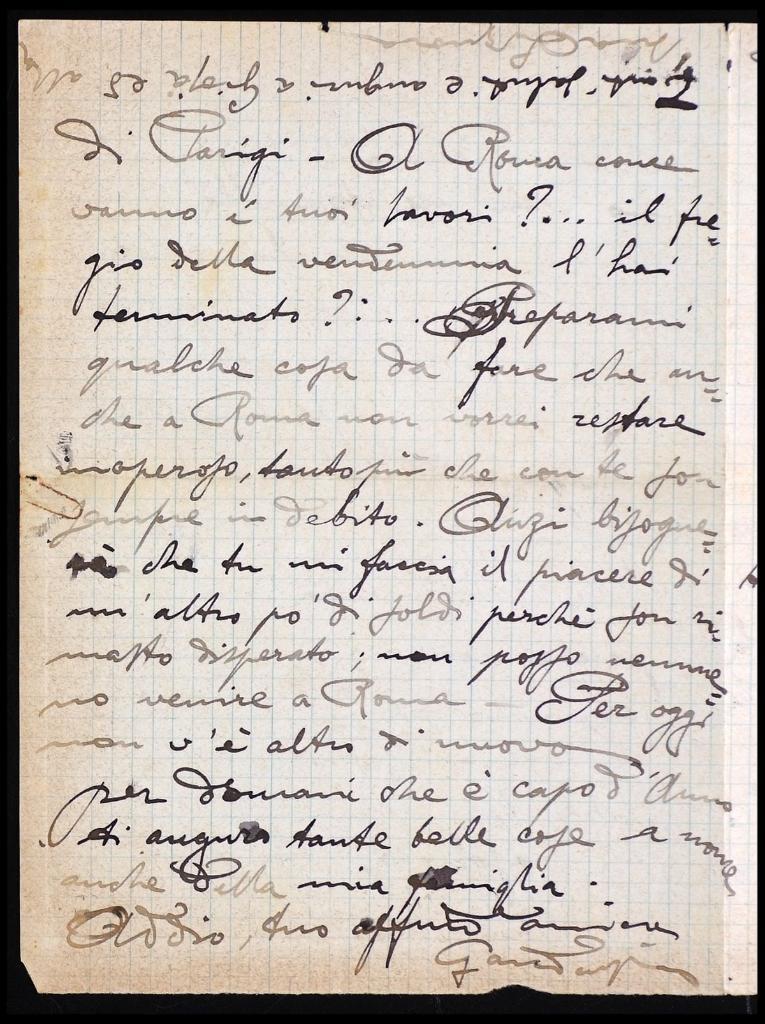 Tanti saluti e auguri a Giejà ed alla
tua Signora
di Parigi - A Roma come
vanno i tuoi lavori?... il fre=
gio della vendemmia l'hai
terminato?... Preparami
qualche cosa da fare che an=
che a Roma non vorrei restare
inoperoso, tanto più che con te son
sempre in debito. Anzi bisogne=
rà che tu mi faccia il piacere di
un' altro po' di soldi perchè son ri=
masto disperato; non posso nemme=
no venire a Roma - Per oggi
non v'è altro di nuovo
per domani che è capo d'Anno
ti auguro tante belle cose a nome
anche della mia famiglia.
Addio, tuo affmo amico